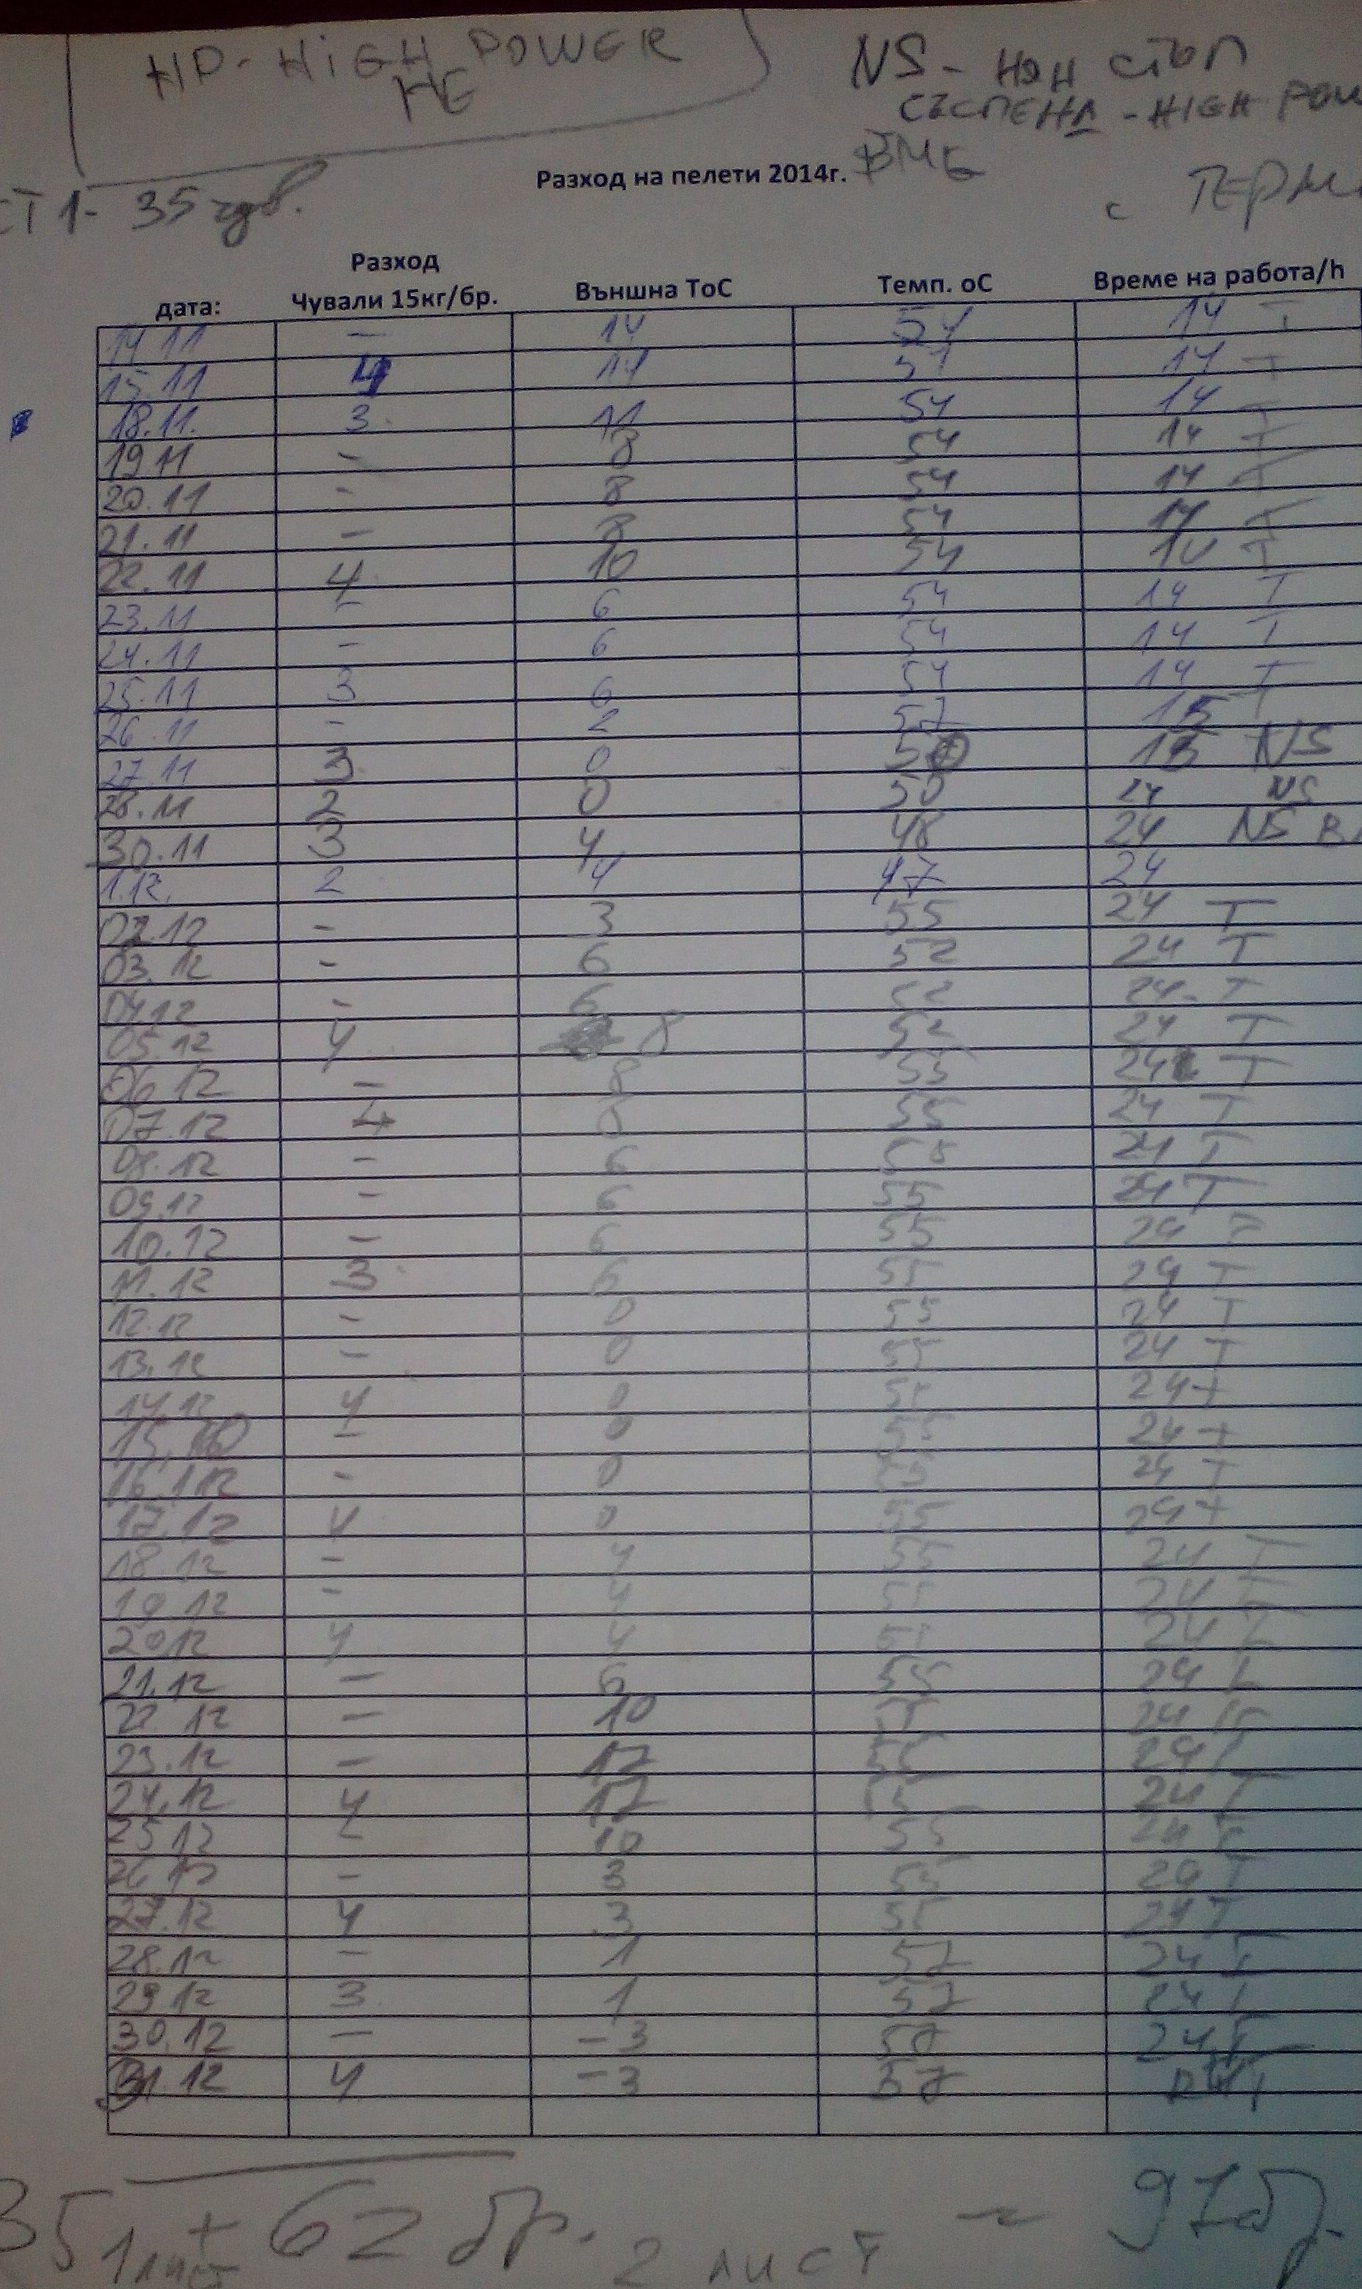 HP - HIGH POWER
NE
NS - НОН СТОП
СЪСПЕНД - HIGH POW
Разход на пелети 2014г.
СТ 1 - 35 чув.
с ТЕРМ
дата: Разход Чували 15кг/бр. Външна ТоС Темп. оС Време на работа/h
14 11 - 14 54 14 T
15.11 4 14 51 14 T
18.11. 3 11 54 14 T
19 11 - 8 54 14 T
20.11 - 8 54 14 T
21.11 - 8 54 14 T
22.11 4 10 54 14 T
23.11 - 6 54 14 T
24.11 - 6 54 14 T
25.11 3 6 54 14 T
26.11 - 2 52 15 T
27.11 3 0 50 15 NS
28.11 2 0 50 24 NS
30.11 3 4 48 24 NS В
1.12. 2 4 47 24
02.12 - 3 55 24 T
03.12 - 6 52 24 T
04.12 - 6 52 24 T
05.12 4 8 52 24 T
06.12 - 8 55 24 T
07.12 4 8 55 24 T
08.12 - 6 55 24 T
09.12 - 6 55 24 T
10.12 - 6 55 24 T
11.12 3 6 55 24 T
12.12 - 0 55 24 T
13.12 - 0 55 24 T
14.12 4 0 55 24 T
15. - 0 55 24 T
16.12 - 0 55 24 T
17.12 4 0 55 24 T
18.12 - 4 55 24 T
19.12 - 4 55 24 T
20.12 4 4 55 24 T
21.12 - 6 55 24 T
22.12 - 10 55 24 T
23.12 - 12 55 24 T
24.12 4 12 55 24 T
25.12 - 10 55 24 T
26.12 - 3 55 24 T
27.12 4 3 55 24 T
28.12 - 1 57 24 T
29.12 3 1 57 24 T
30.12 - -3 57 24 T
31.12 4 -3 57 24 T
35 1 лист + 62 бр. 2 лист ~ 97 бр.